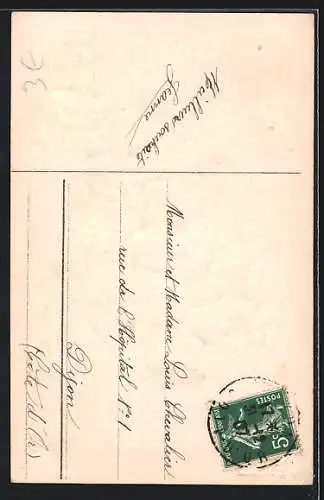 Meilleurs souhaits
Jeanne
Monsieur et Madame Louis Chevalier
rue de l'Hôpital n° 1
Dijon
(Côte d'Or)
POSTES
5